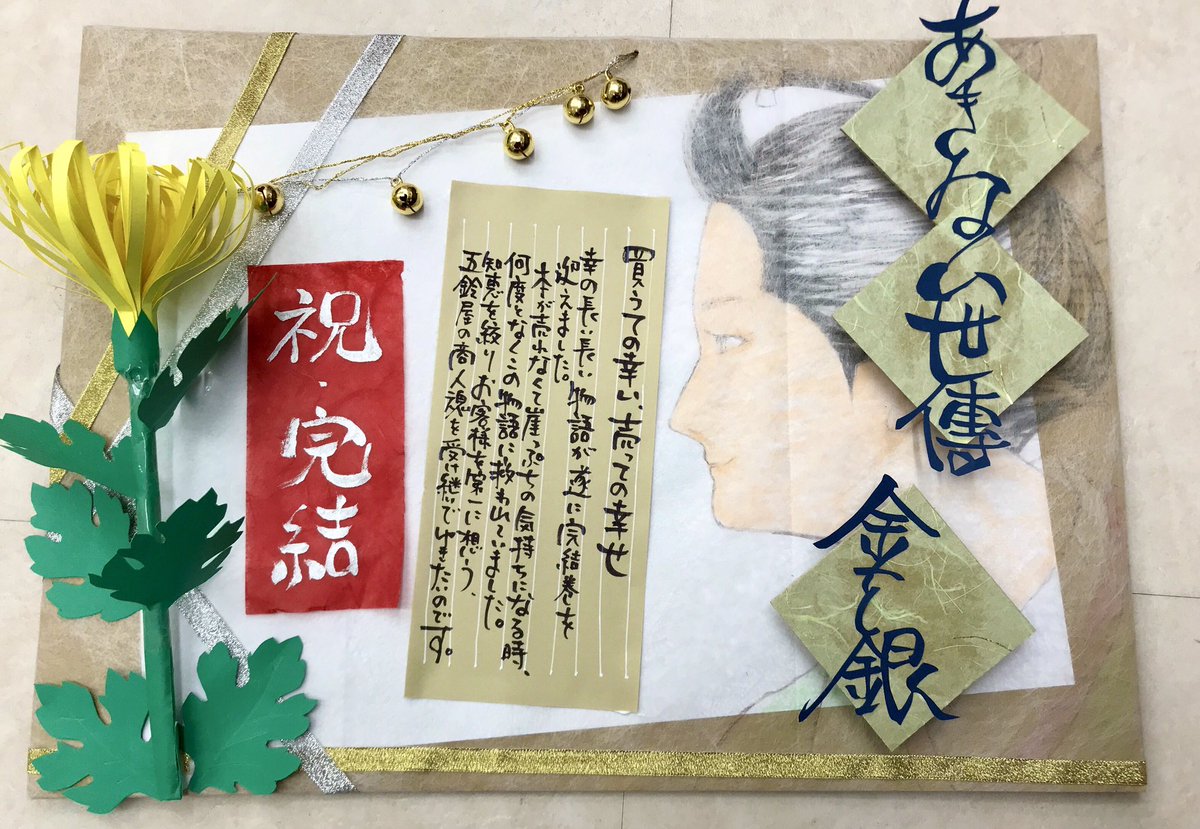 あきない世傳
金と銀
買うての幸い、売っての幸せ
幸の長い長い物語が遂に完結巻を
迎えました。
本が売れなくて崖っぷちの気持ちになる時、
何度となくこの物語に救われていました。
知恵を絞り、お客様を第一に想う、
五鈴屋の商人魂を受け継いでゆきたいのです。
祝・完結